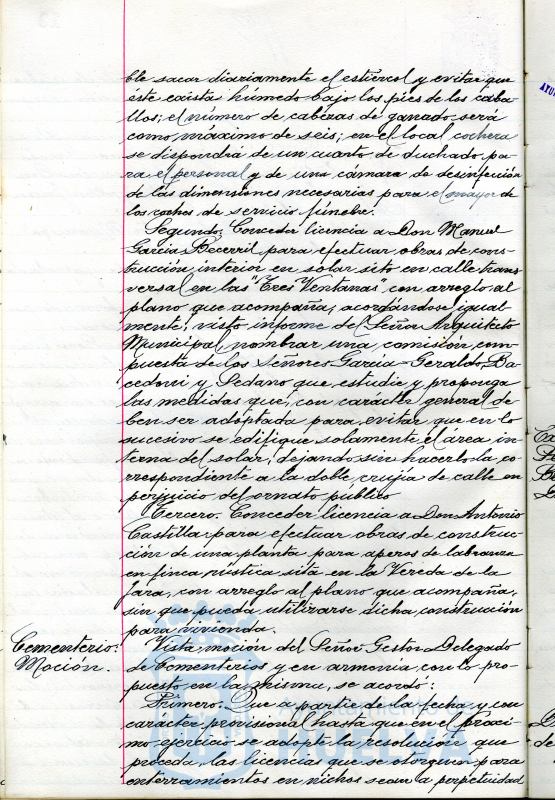 ble sacar diariamente el estiércol y evitar que
éste exista húmedo bajo los pies de los caba-
llos; el número de cabezas de ganado será
como máximo de seis; en el local cochera
se dispondrá de un cuarto de duchado pa-
ra el personal y de una cámara de desinfección
de las dimensiones necesarias para el mayor de
los coches de servicio fúnebre.
Segundo. Conceder licencia a Don Manuel
García Becerril para efectuar obras de cons-
trucción interior en solar sito en calle trans
versal en las "Tres Ventanas" con arreglo al
plano que acompaña, acordándose igual-
mente, visto informe del Señor Arquitecto
Municipal, nombrar una comisión com-
puesta de los Señores García-Geraldo, Ba-
cedoni y Sedano que estudie y proponga
las medidas que, con carácter general de
ben ser adoptada para evitar que en lo
sucesivo se edifique solamente el área in-
terna del solar, dejando sin hacerlo la co-
rrespondiente a la doble crujía de calle en
perjuicio del ornato público
Tercero. Conceder licencia a Don Antonio
Castilla para efectuar obras de construc-
ción de una planta para aperos de labranza
en finca rústica sita en la Vereda de la
Jara, con arreglo al plano que acompaña,
sin que pueda utilizarse dicha construcción
para vivienda.
Cementerio: Moción.
Vista moción del Señor Gestor Delegado
de Cementerios y en armonía con lo pro-
puesto en la misma, se acordó:
Primero. Que a partir de la fecha y con
carácter provisional hasta que en el próxi-
mo ejercicio se adopte la resolución que
proceda, las licencias que se otorguen para
enterramientos en nichos sean a perpetuidad
HUELVA